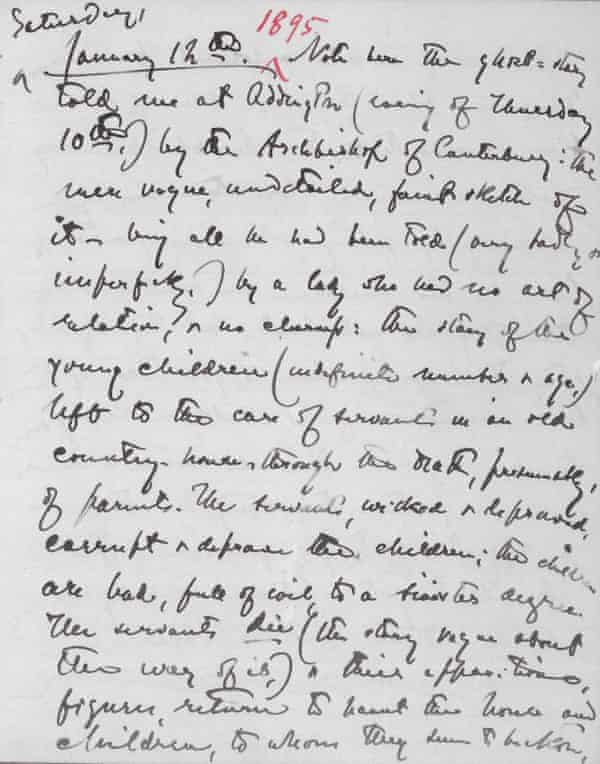 Saturday,
1895
January 12th. ^ Note here the ghost-story
told me at Addington (evening of Thursday
10th.) by the Archbishop of Canterbury: the
mere vague, undetailed, faint sketch of
it – being all he had been told (very badly &
imperfectly,) by a lady who had no art of
relation, & no clearness: the story of the
young children (indefinite number & age,)
left to the care of servants in an old
country-house, through the death, presumably,
of parents. The servants, wicked & depraved,
corrupt & deprave the children; the children
are bad, full of evil, to a sinister degree.
The servants die (the story vague about
the way of it,) & their apparitions,
figures, return to haunt the house and
children, to whom they seem to beckon,